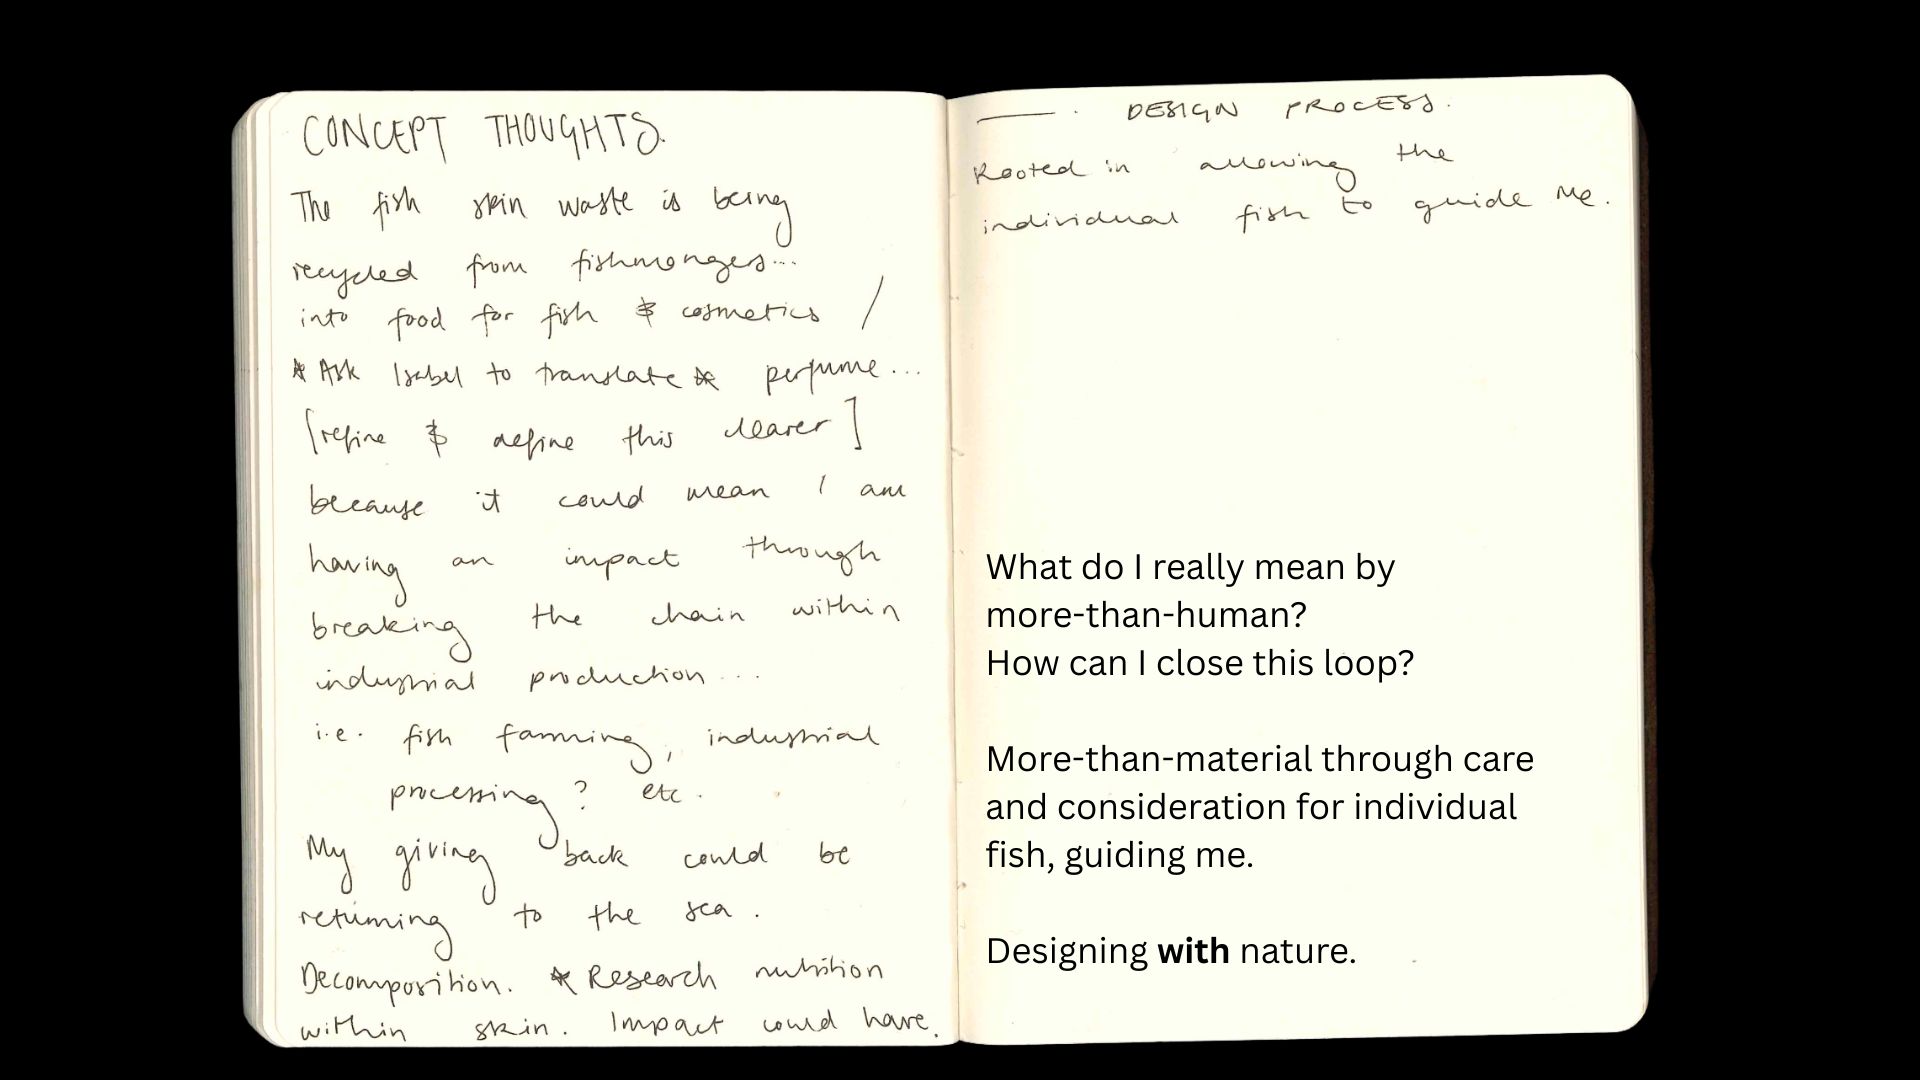 CONCEPT THOUGHTS.
The fish skin waste is being
recycled from fishmongers...
into food for fish & cosmetics /
* Ask Isabel to translate * perfume...
[refine & define this clearer]
because it could mean I am
having an impact through
breaking the chain within
industrial production...
i.e. fish farming, industrial
processing? etc.
My giving back could be
returning to the sea.
Decomposition. * Research nutrition
within skin. Impact could have.
—. DESIGN PROCESS.
Rooted in allowing the
individual fish to guide me.
What do I really mean by
more-than-human?
How can I close this loop?
More-than-material through care
and consideration for individual
fish, guiding me.
Designing with nature.